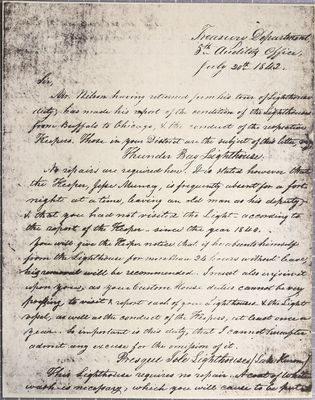 Treasury Department,
5th Auditor's Office,
July 20th 1842.
Sir,
Mr. Nelson having returned from his tour of Lighthouse
duty, has made his report of the condition of the Lighthouses
from Buffalo to Chicago, & the conduct of the respective
Keepers. Those in your District are the subject of this letter.
Thunder Bay Lighthouse.
No repairs are required here. It is stated however that
the Keeper, Jesse Muncey, is frequently absent for a fort
night at a time, leaving an old man as his deputy
& that you had not visited the Light according to
the report of the Keeper since the year 1840.
You will give the Keeper notice that if he absents himself
from the Lighthouse for more than 24 hours without leave
his removal will be recommended. I must also enjoin it
upon you, as your Custom House duties cannot be very
pressing to visit & report each of your Lighthouses & the Light
vessel, as well as the conduct of the Keepers, at least once a
year. So important is this duty, that I cannot
admit any excuse for the omission of it.
Presque Isle Lighthouse, (Lake Huron)
This Lighthouse requires no repair. A coat of white
wash is necessary, which you will cause to be put